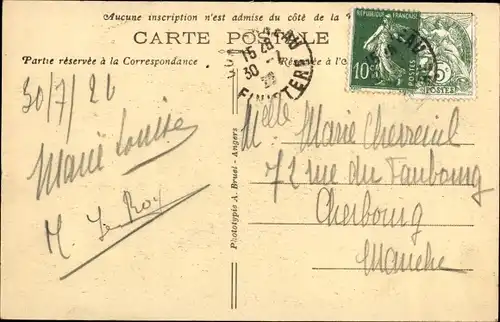 Aucune inscription n'est admise du côté de la
CARTE POSTALE
Partie réservée à la Correspondance
Réservée à l'
RÉPUBLIQUE FRANÇAISE
10
POSTES
5
POSTES
15
30
FINISTERE
30/7/26
Marie Louise
M. Le Roy
Phototypie A. Bruel - Angers
Melle Marie Chevreuil
72 rue du Faubourg
Cherbourg
Manche